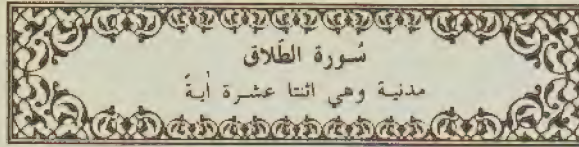 سُورة الطّلاق
مدنية وهي اثنتا عشرة أيةً